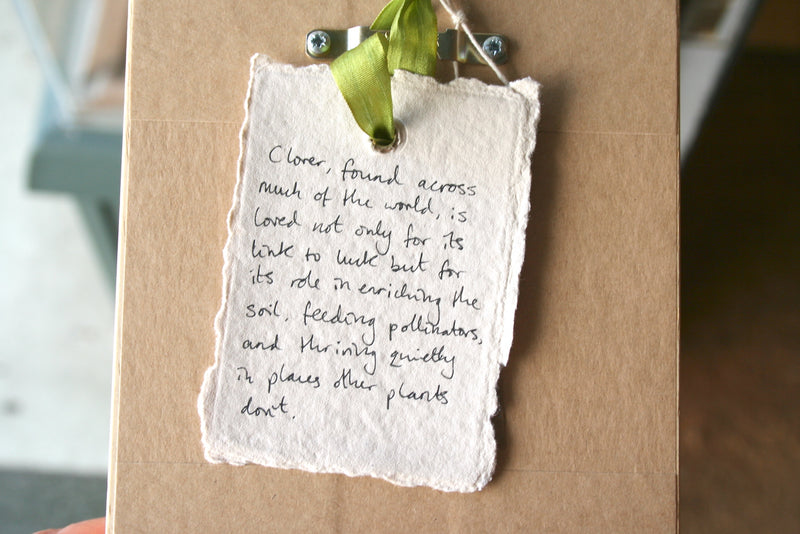 Clover, found across
much of the world, is
loved not only for its
link to luck but for
its role in enriching the
soil, feeding pollinators,
and thriving quietly
in places other plants
don't.